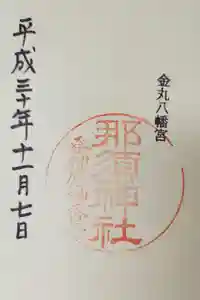 金丸八幡宮
那須神社
平成三十年十一月七日